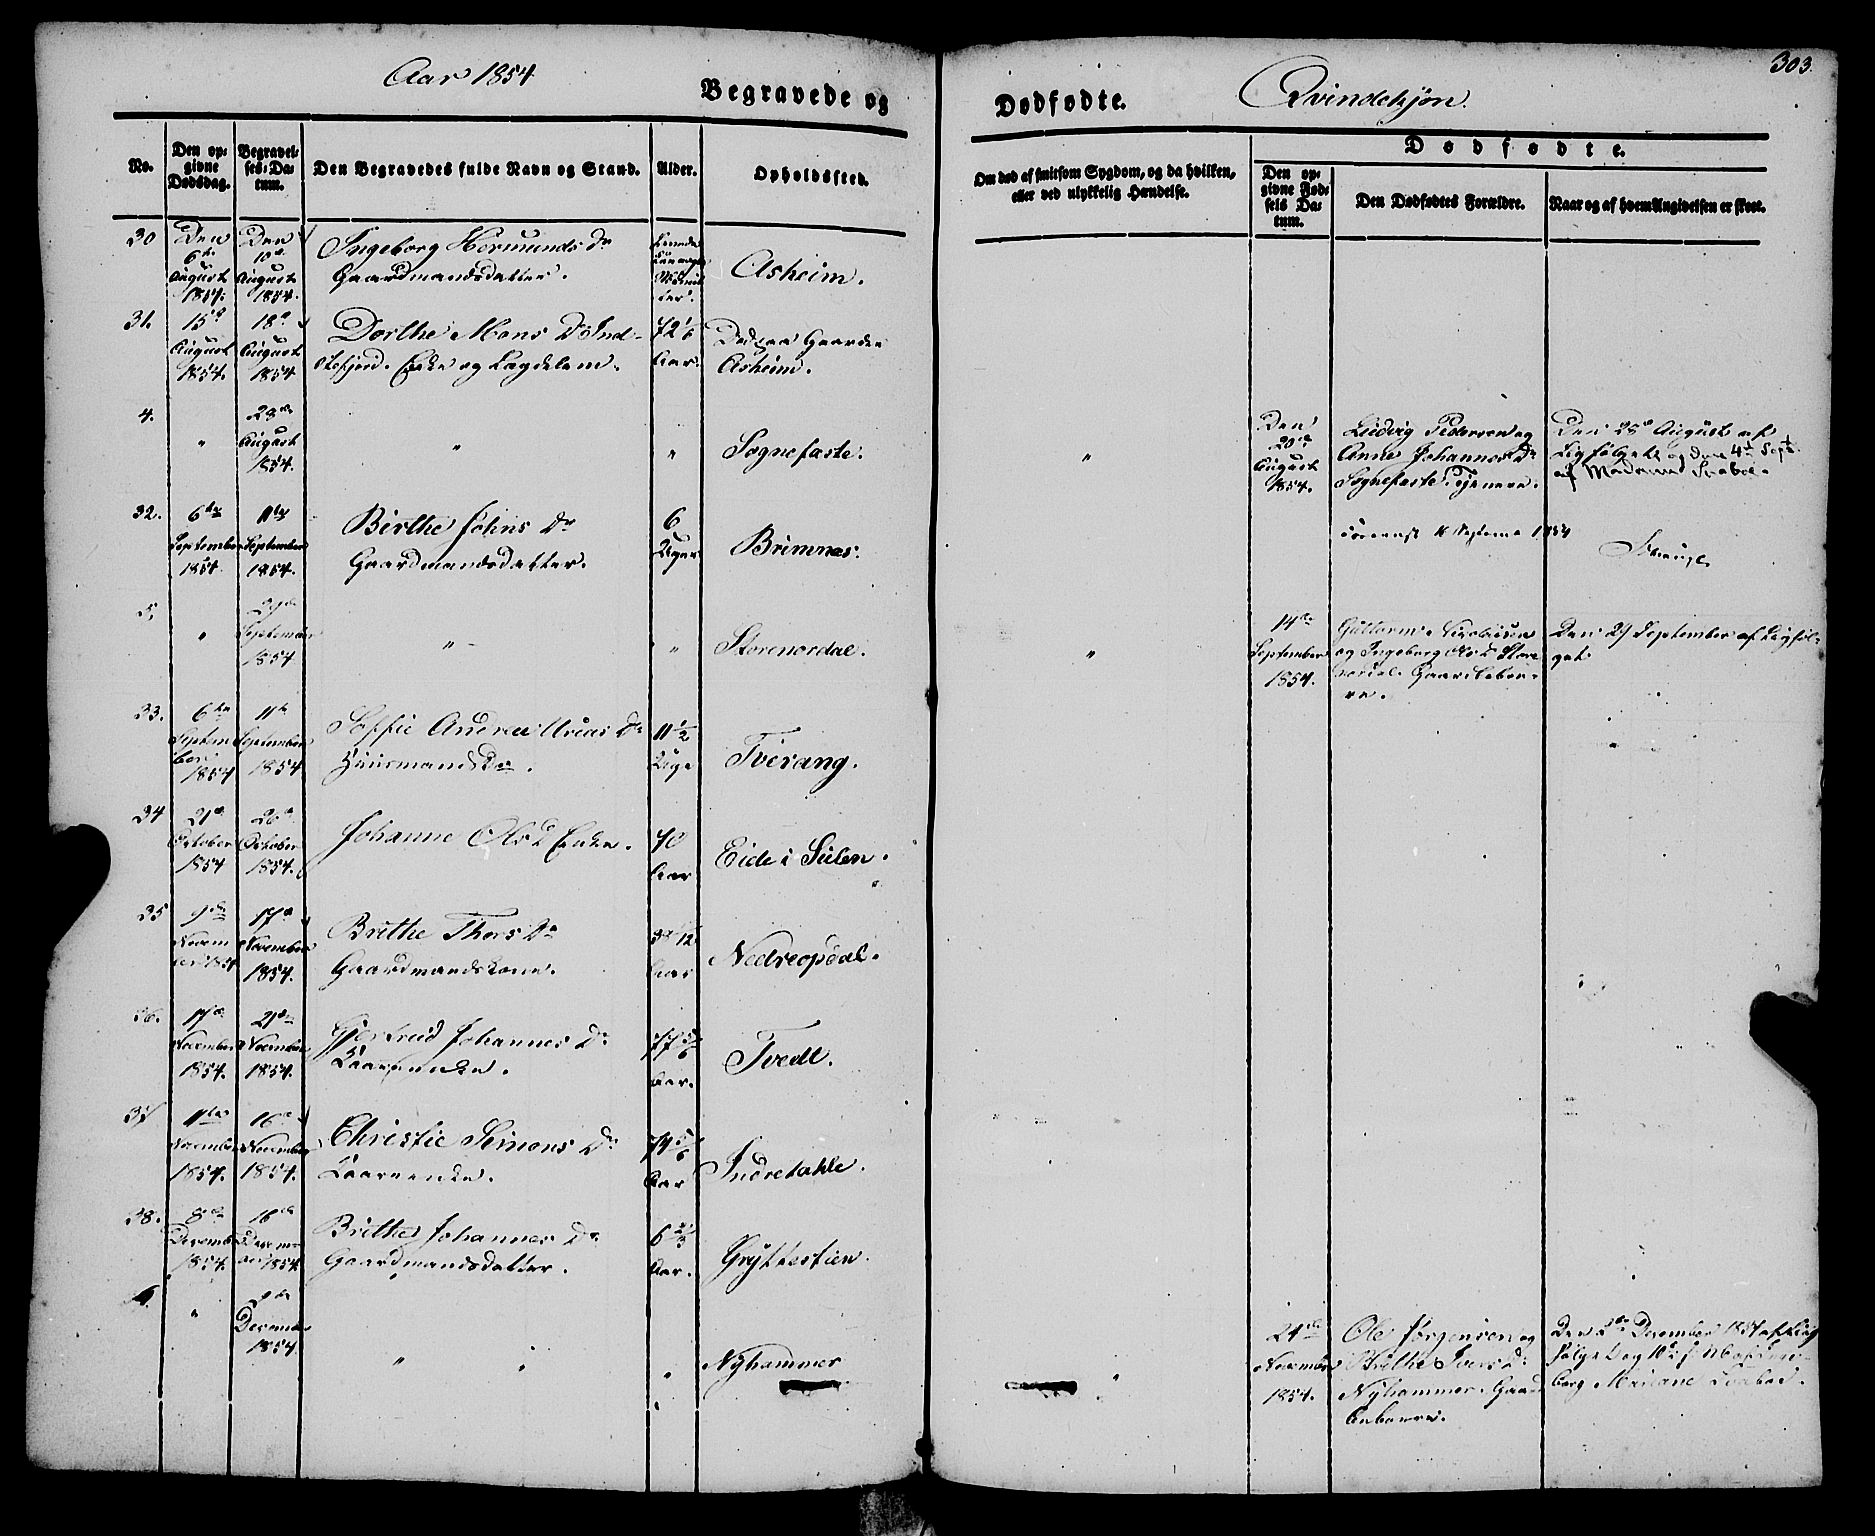 Aar 1854
Begravede og
Dødfødte.
Qvindekjøn.
303.
No.
Den opgivne Dødsdag.
Begravelses-Datum.
Den Begravedes fulde Navn og Stand.
Alder.
Opholdssted.
Om død af smitsom Sygdom, og da hvilken,
eller ved ulykkelig Hændelse.
Dødfødte.
Den opgivne Fødsels Datum.
Den Dødfødtes Forældre.
Naar og af hvem Angivelsen er skeet.
30 Den 6te August 1854. Den 10de August 1854.
Ingeborg Hermunds Dr
Gaardmandsdatter.
Asheim.
31. 15d August 1854. 18d August 1854
Dorthe Mons D. Ind-
stefjord. Enke og Lægdelem.
72 1/6 Aar.
Død paa Gaarden
Asheim.
4. " 28de August 1854. " "
Sognefæste.
"
Den 20de August 1854.
Ludvig Pedersen og
Anne Johannes Dr
Sognefæste. Tjenere.
Den 28d August af
Ligfølget og den 4de Sept.
af Madame
32. 6te September 1854. 11te September 1854.
Birthe Johns Dr
Gaardmandsdatter.
6 Uger
Brimnæs.
September 1854
5. " September 1854 " "
Storenordal.
"
14de September 1854.
Guttorm
og Ingeborg Store
nordal. Gaard
Den 29 September af Ligføl-
get.
33. 6te September 1854 11te September 1854
Soffie Andrea Urias Dr
Huusmands Dr.
11 1/2 Uge
Tverang.
34 21d October 1854 26d October 1854.
Johanne Ols D. Enke.
70 Aar
Eide i Sulen.
35 9de November 1854 17d November 1854.
Brithe Thors Dr
Gaardmandskone.
Aar
Nedreopdal.
36. 17de November 1854. 21de November 1854.
Gjertrud Johannes Dr
Kaarenke.
77 5/6 Aar.
Tvedt.
37 11te November 1854. 16d November 1854.
Christie Simons Dr
Kaarenke.
74 5/6 Aar
Indretakle.
38. 8de December 1854. 16de December 1854.
Brithe Johannes Dr
Gaardmandsdatter.
6 2/3 Aar.
Gryttestien.
6. " December 1854. " " "
Nyhammer
"
24de November 1854.
Ole Jørgensen og
Brithe Ivers Dr
Nyhammer. Gaard
December 1854 af Lig
følget og
Madame